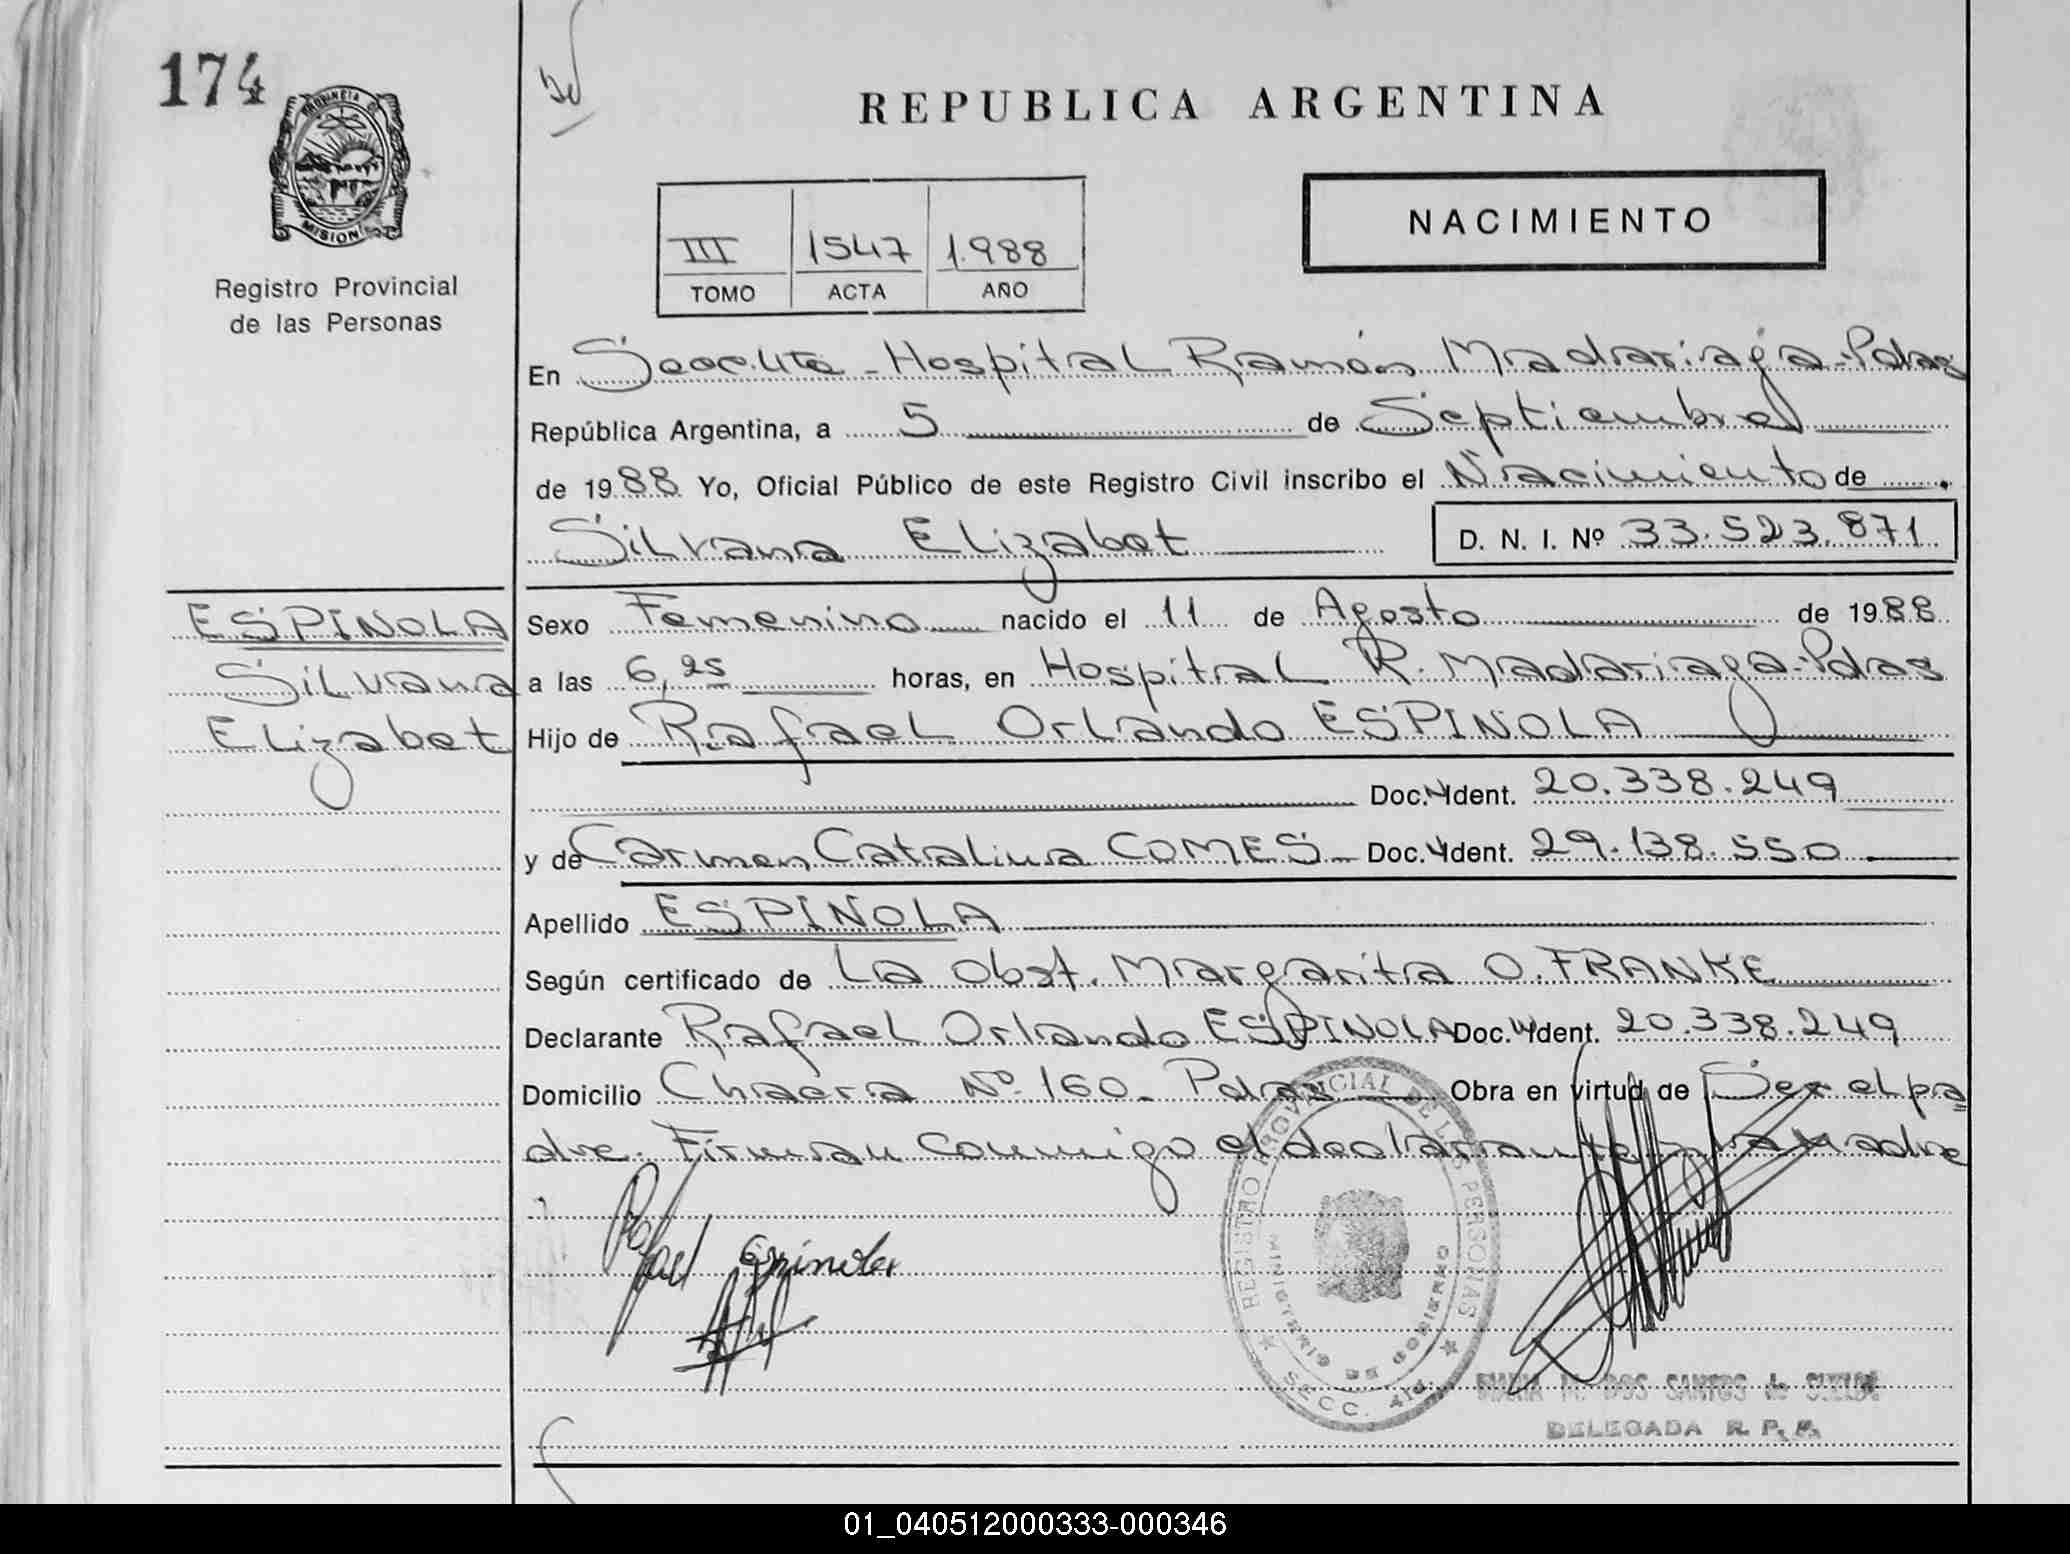 174
PROVINCIA DE
MISIONES
Registro Provincial
de las Personas
REPUBLICA ARGENTINA
NACIMIENTO
III 1547 1.988
TOMO ACTA AÑO
En Secc. 4ta - Hospital Ramón Madariaga - Pdas
República Argentina, a 5 de Septiembre
de 1988 Yo, Oficial Público de este Registro Civil inscribo el Nacimiento de
Silvana Elizabet D. N. I. Nº 33.523.871
ESPINOLA
Silvana
Elizabet
Sexo Femenino nacido el 11 de Agosto de 1988
a las 6,25 horas, en Hospital R. Madariaga - Pdas
Hijo de Rafael Orlando ESPINOLA
Doc. Ident. 20.338.249
y de Carmen Catalina COMES Doc. Ident. 29.138.550
Apellido ESPINOLA
Según certificado de La Obst. Margarita O. FRANKE
Declarante Rafael Orlando ESPINOLA Doc. Ident. 20.338.249
Domicilio Chacra Nº 160 - Pdas Obra en virtud de Ser el pa
dre. Firman conmigo el declarante y la madre
Rafael Espinola
REGISTRO PROVINCIAL DE LAS PERSONAS
MINISTERIO DE GOBIERNO
SECC. 4ta.
M. DOS SANTOS de
DELEGADA R. P. P.
01_040512000333-000346